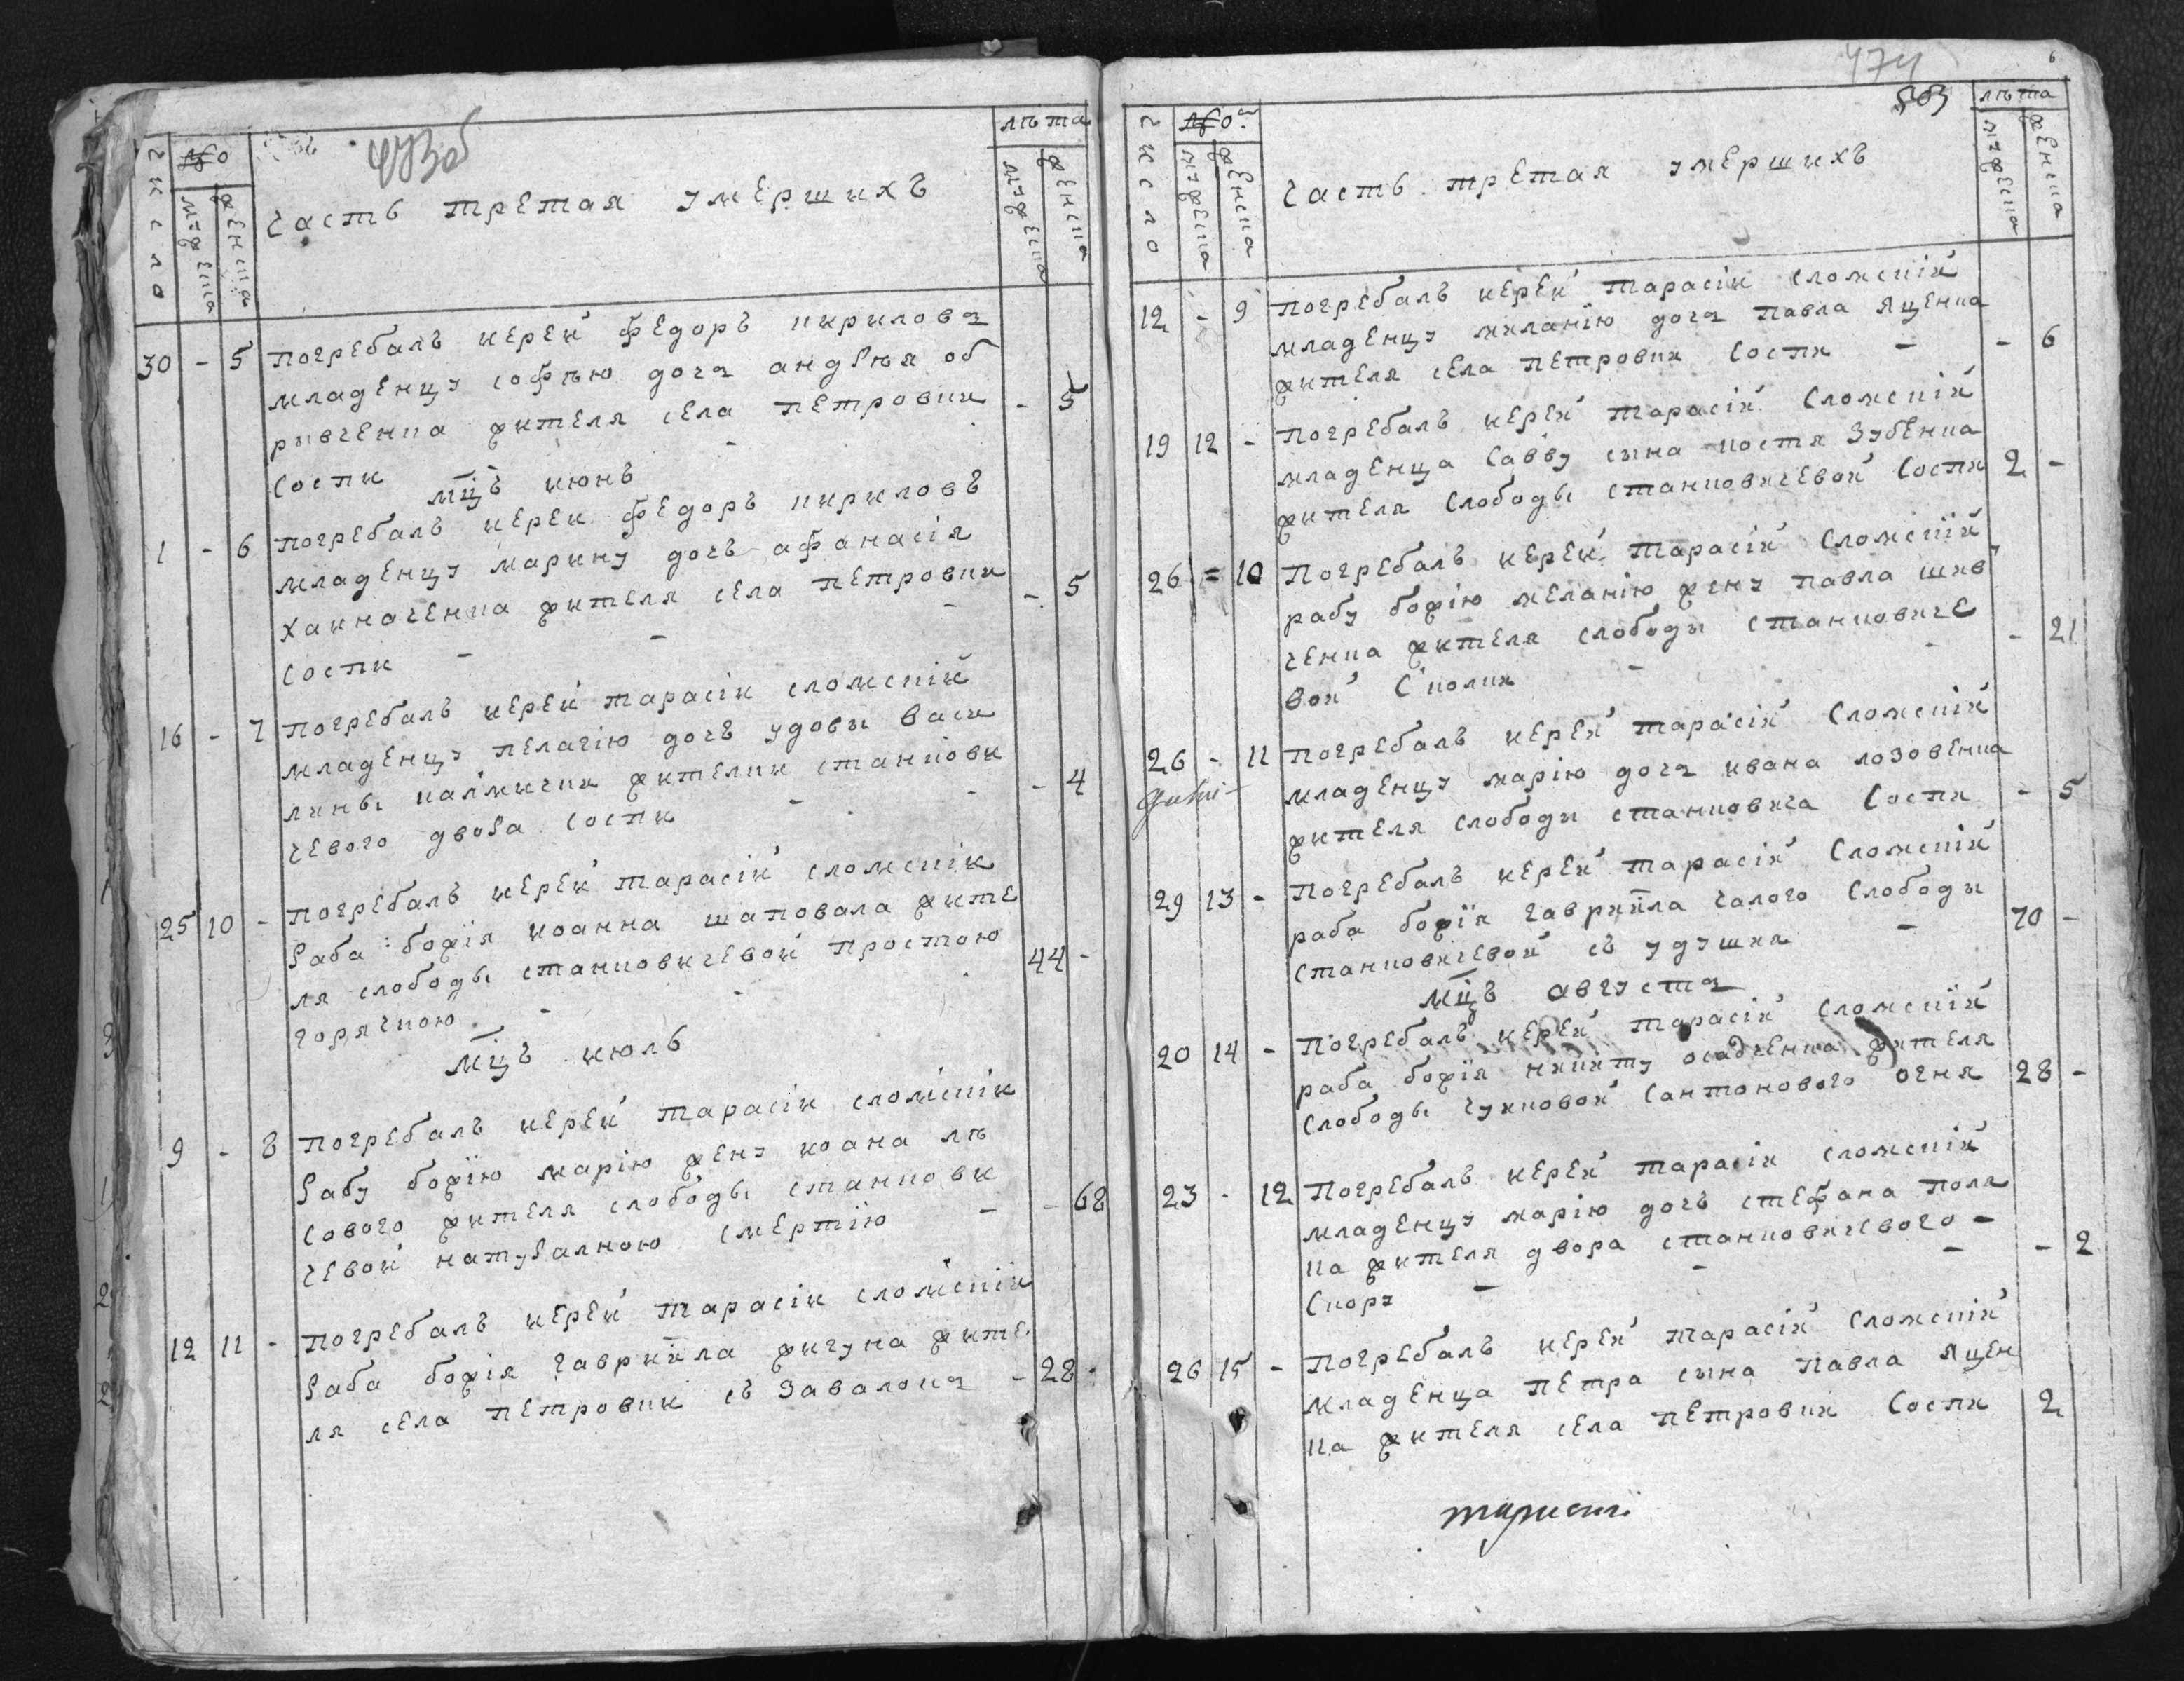 473об
число
№
мужеска
женска
Часть третая умершихъ
лѣта
мужеска
женска
30 - 5 погребалъ иерей федоръ кириловъ
младенцу софѣю дочъ андрѣя об
ривченка жителя села петровки
Соспи - - 5
мцъ июнь
1 - 6 погребалъ иерей федоръ кириловъ
младенцу марину дочъ афанасія
жителя села петровки
соспи - - - - 5
16 - 7 погребалъ иерей тарасій сломскій
младенцу пелагію дочъ удовы васи
лины калмички жителки станкови
чевого двора соспи - - - 4
25 10 - погребалъ иерей тарасій сломскій
раба божія иоанна шаповала жите
ля слободы станковичевой простою
горячкою - - 44 -
мцъ июль
9 - 8 погребалъ иерей тарасій сломскій
рабу божію марію жену иоана лѣ
сового жителя слободы станкови
чевой натуралною смертію - - 68
12 11 - погребалъ иерей тарасій сломскій
раба божія гавриила жигуна жите
ля села петровки съ завалока - 28 -
474
503
6
число
№
мужеска
женска
Часть третая умершихъ
лѣта
мужеска
женска
12 - 9 погребалъ иерей тарасій сломскій
младенцу миланію дочъ павла яценка
жителя села петровки соспи - - 6
19 12 - погребалъ иерей тарасій сломскій
младенца савву сына костя зубенка
жителя слободы станковичевой соспи 2 -
26 = 10 погребалъ иерей тарасій сломскій
рабу божію меланію жену павла шев
ченка жителя слободы станковиче
вой с колки - - - 21
26 - 11 погребалъ иерей тарасій сломскій
младенцу марію дочъ ивана лозовенка
жителя слободы станковича соспи - 5
29 13 - погребалъ иерей тарасій сломскій
раба божія гавриила чалого слободы
станковичевой съ удушия - 70 -
мцъ августъ
20 14 - погребалъ иерей тарасій сломскій
раба божія никиту осадченка жителя
слободы сантонового огня 28 -
23 - 12 погребалъ иерей тарасій сломскій
младенцу марію дочъ стефана поля
ка жителя двора станковичевого -
скору - - - - 2
26 15 - погребалъ иерей тарасій сломскій
младенца петра сына павла яцен
ка жителя села петровки соспи 2